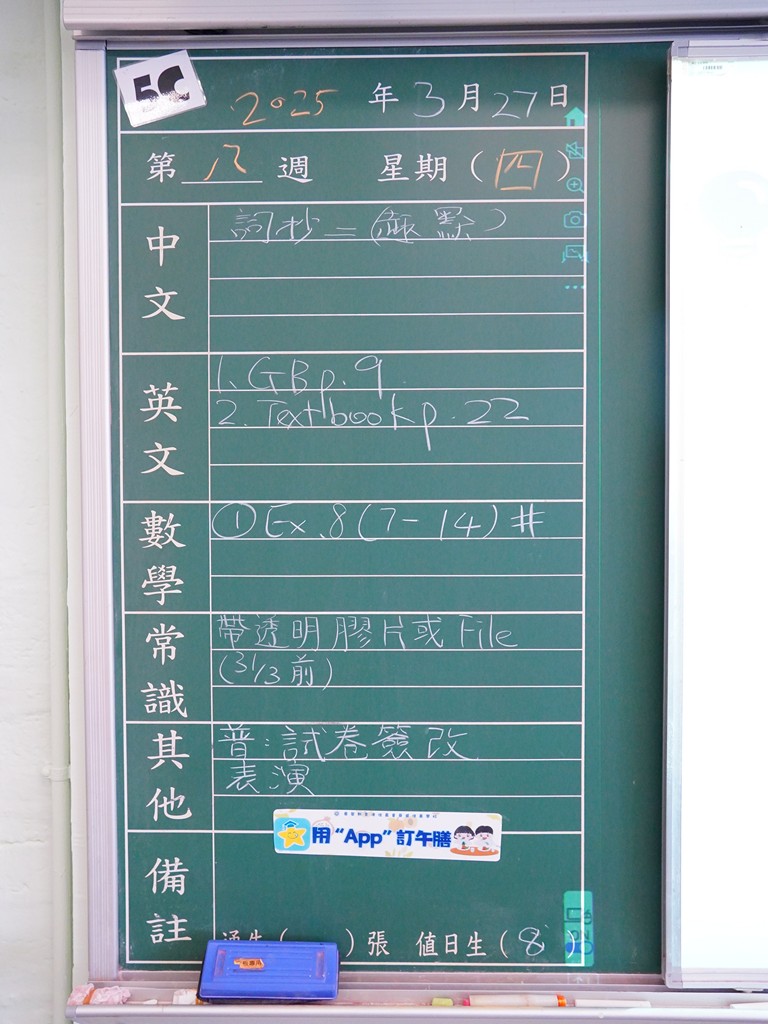 5C
2025 年 3 月 27 日
第 八 週 星期 (四)
中文
詞抄二 (
默)
英文
1. GB p. 9
2. Textbook p. 22
數學
① Ex. 8 (7-14) #
常識
帶透明膠片或 File
(31/3 前)
其他
普:試卷簽改
表演
用“App”訂午膳
備註
( )張 值日生(8)